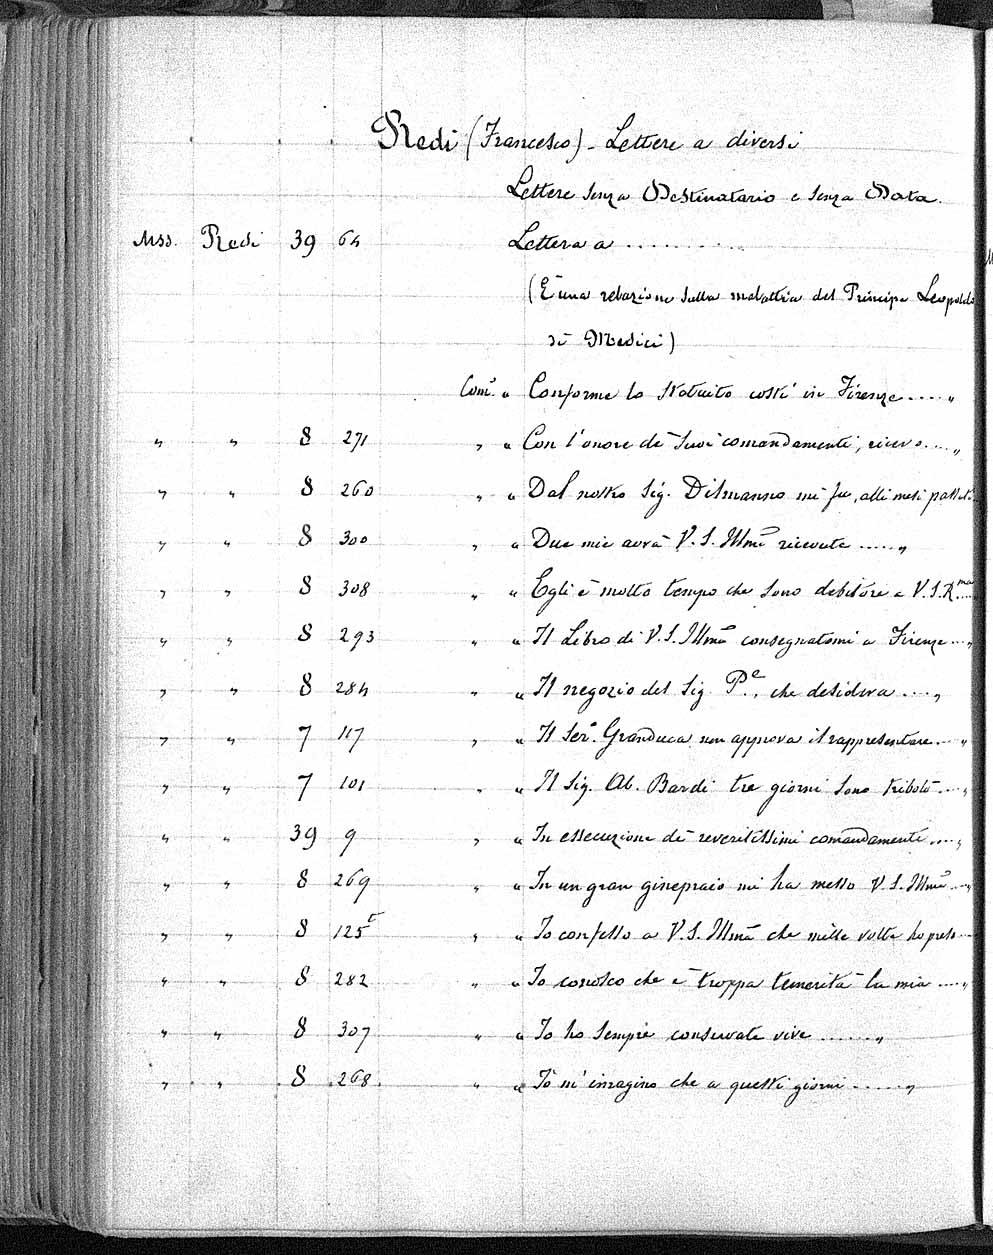 Redi (Francesco) - Lettere a diversi
Lettere senza Destinatario e senza Data.
Mss. Redi 39 64 Lettera a ..........
(È una relazione sulla malattia del Principe Leopoldo
di Medici)
Com.a " Conforme lo statuito costì in Firenze .... "
" " 8 271 " " Con l'onore de' suoi comandamenti, ricevo .... "
" " 8 260 " " Dal nostro Sig. Dilmanno mi fu, alli mesi passati
" " 8 300 " " Due mie avrà V. S. Illma ricevute ..... "
" " 8 308 " " Egli è molto tempo che sono debitore a V. S. Rma ....
" " 8 293 " " Il Libro di V. S. Illma consegnatomi a Firenze ... "
" " 8 284 " " Il negozio del Sig. P.e, che desidera .... "
" " 7 117 " " Il Ser.o Granduca non approva il rappresentare ... "
" " 7 101 " " Il Sig. Ab. Bardi tre giorni sono tributò .... "
" " 39 9 " " In essecuzione de' reveritissimi comandamenti .... "
" " 8 269 " " In un gran ginepraio mi ha messo V. S. Illma ... "
" " 8 125 t " " Io confesso a V. S. Illma che mille volte ho preso ...
" " 8 282 " " Io conosco che è troppa temerità la mia .... "
" " 8 307 " " Io ho sempre conservate vive ...... "
" " 8 268 " " Io m'imagino che a questi giorni ...... "